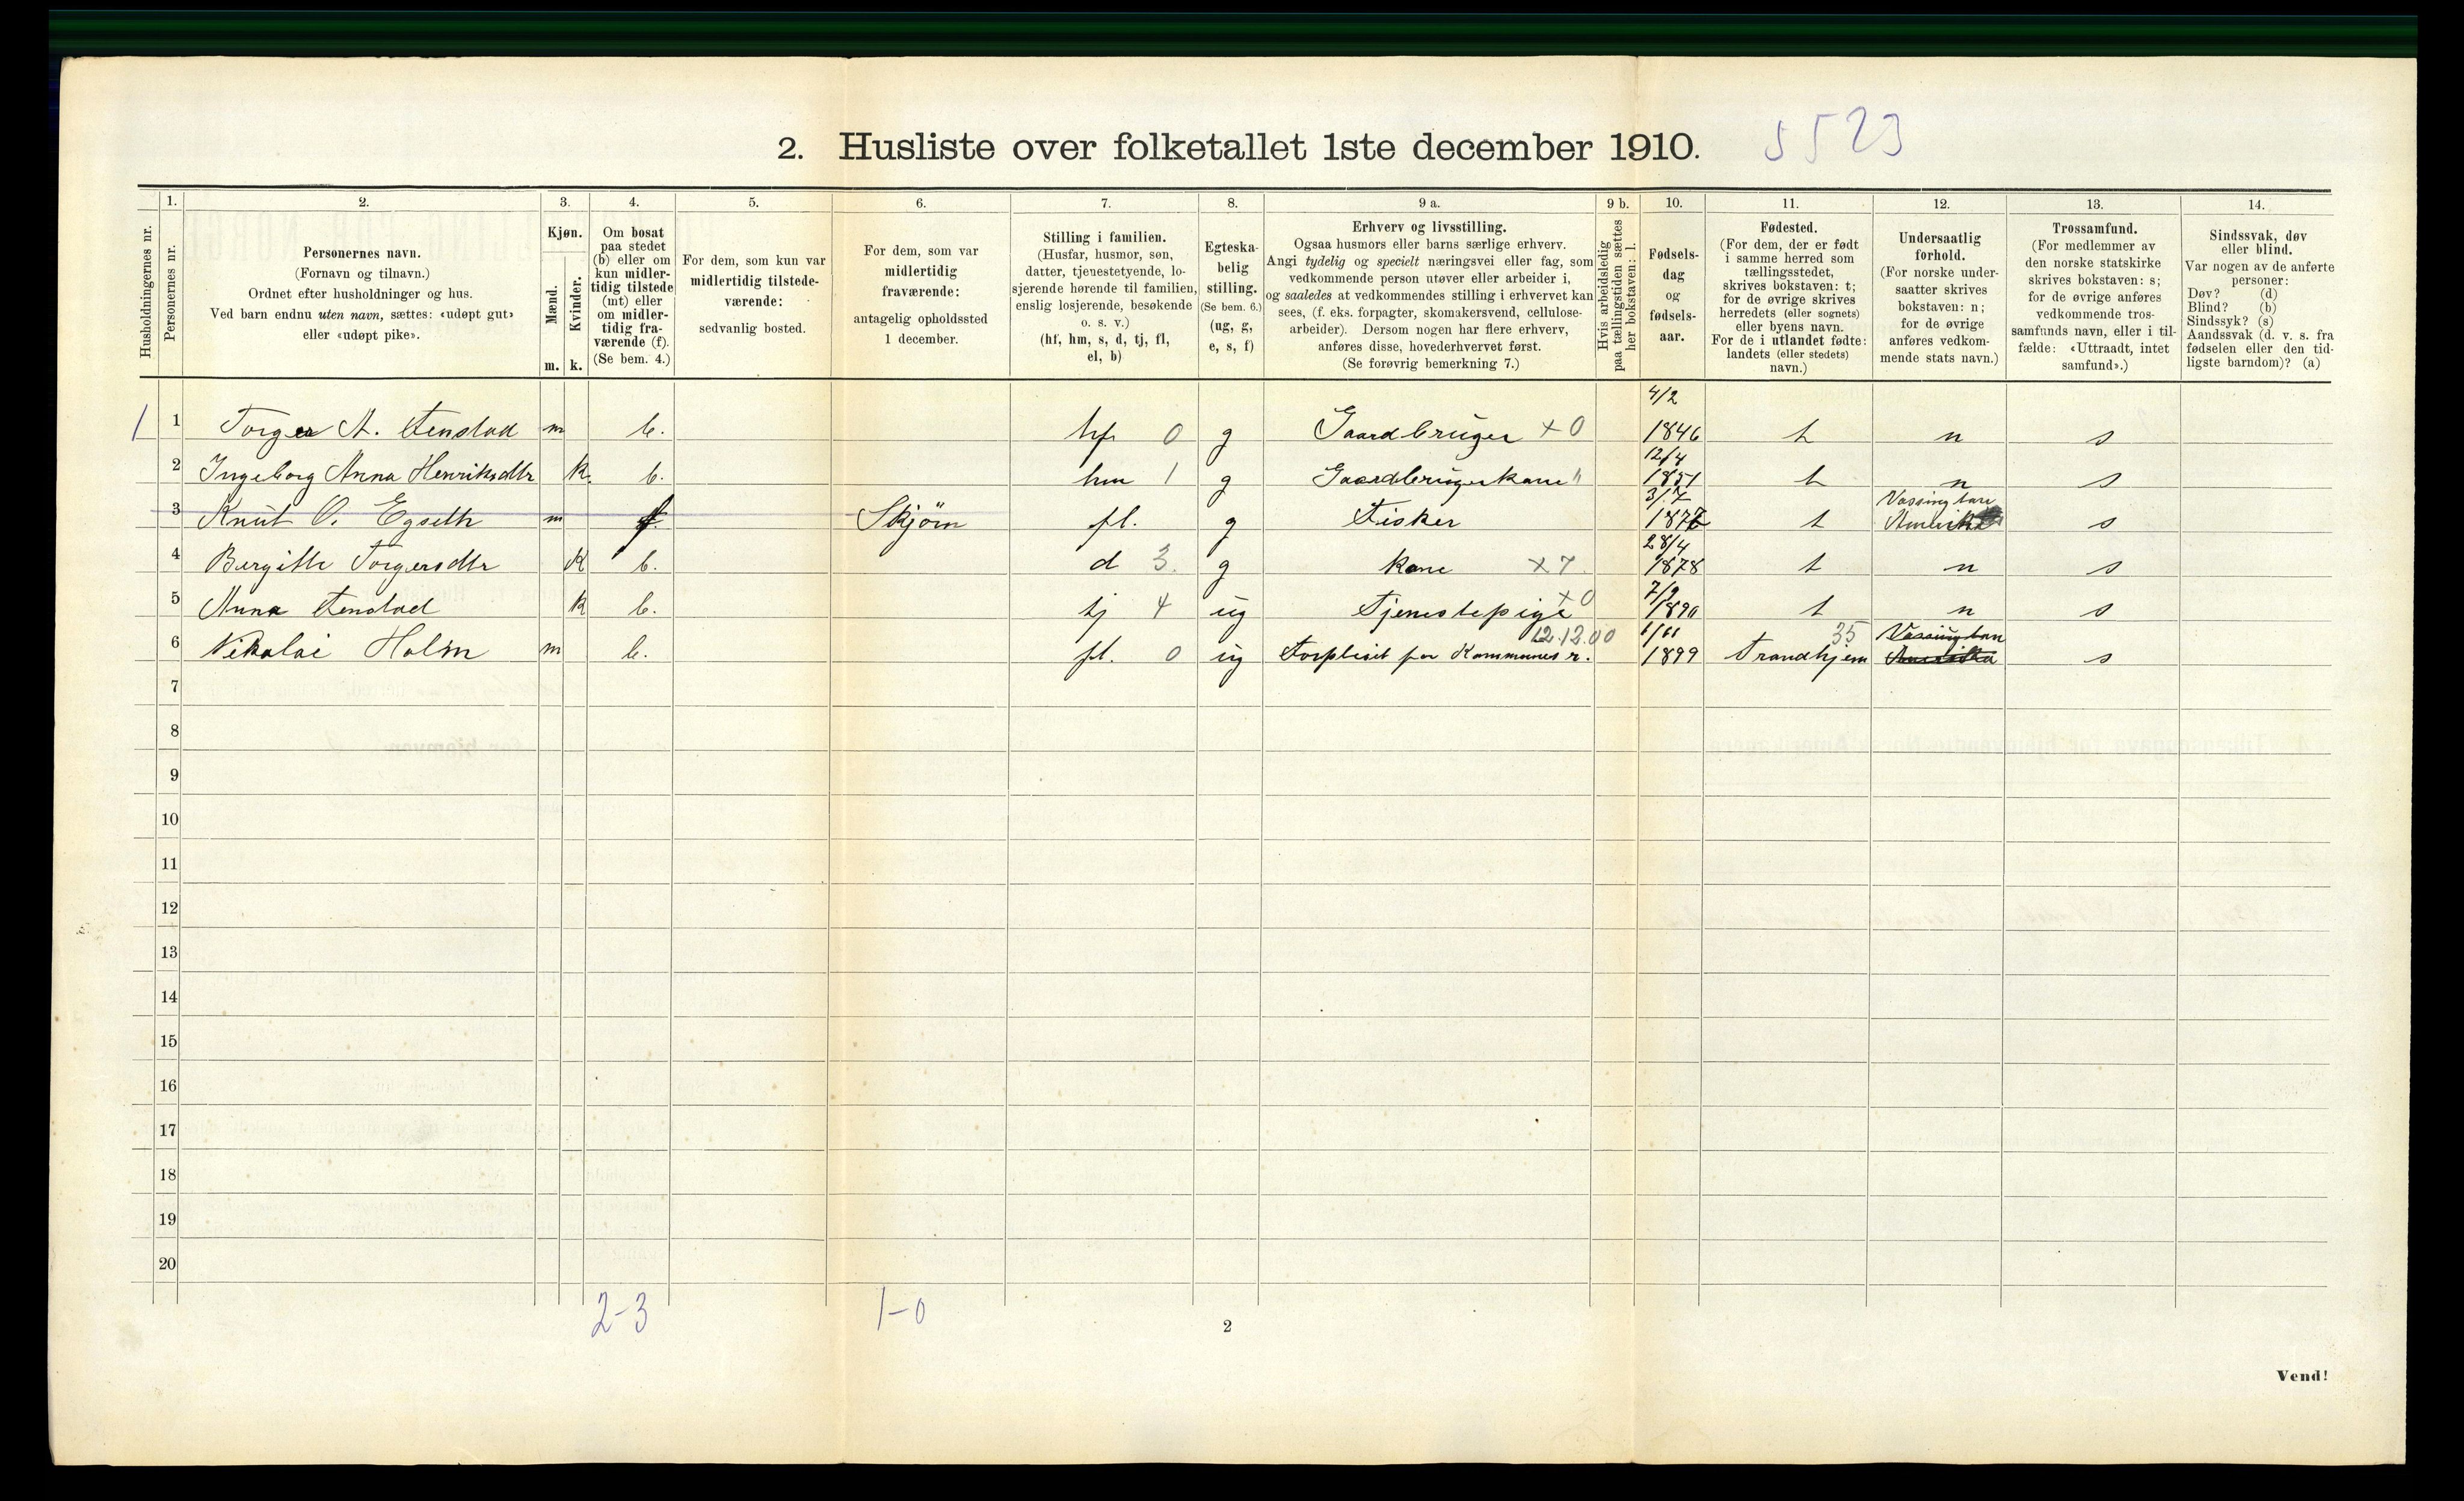 2. Husliste over folketallet 1ste december 1910. 5523
Husholdningernes nr.
1. Personernes nr.
2. Personernes navn. (Fornavn og tilnavn.) Ordnet efter husholdninger og hus. Ved barn endnu uten navn, sættes: «udøpt gut» eller «udøpt pike».
3. Kjøn. Mænd. m. Kvinder. k.
4. Om bosat paa stedet (b) eller om kun midlertidig tilstede (mt) eller om midlertidig fraværende (f). (Se bem. 4.)
5. For dem, som kun var midlertidig tilstedeværende: sedvanlig bosted.
6. For dem, som var midlertidig fraværende: antagelig opholdssted 1 december.
7. Stilling i familien. (Husfar, husmor, søn, datter, tjenestetyende, losjerende hørende til familien, enslig losjerende, besøkende o. s. v.) (hf, hm, s, d, tj, fl, el, b)
8. Egteskabelig stilling. (Se bem. 6.) (ug, g, e, s, f)
9 a. Erhverv og livsstilling. Ogsaa husmors eller barns særlige erhverv. Angi tydelig og specielt næringsvei eller fag, som vedkommende person utøver eller arbeider i, og saaledes at vedkommendes stilling i erhvervet kan sees, (f. eks. forpagter, skomakersvend, cellulosearbeider). Dersom nogen har flere erhverv, anføres disse, hovederhvervet først. (Se forøvrig bemerkning 7.)
9 b. Hvis arbeidsledig paa tællingstiden sættes her bokstaven: l.
10. Fødselsdag og fødselsaar.
11. Fødested. (For dem, der er født i samme herred som tællingsstedet, skrives bokstaven: t; for de øvrige skrives herredets (eller sognets) eller byens navn. For de i utlandet fødte: landets (eller stedets) navn.)
12. Undersaatlig forhold. (For norske undersaatter skrives bokstaven: n; for de øvrige anføres vedkommende stats navn.)
13. Trossamfund. (For medlemmer av den norske statskirke skrives bokstaven: s; for de øvrige anføres vedkommende trossamfunds navn, eller i tilfælde: «Uttraadt, intet samfund».)
14. Sindssvak, døv eller blind. Var nogen av de anførte personer: Døv? (d) Blind? (b) Sindssyk? (s) Aandssvak (d. v. s. fra fødselen eller den tidligste barndom)? (a)
1 1 Torger A. Stenstad m b. hf 0 g Gaardbruger x0 4/2 1846 t n s
2 Ingeborg Anna Henriksdtr k. b. hm 1 g Gaardbrugerkone " 12/4 1851 t n s
3 Knut O. Egseth m f. Skjörn fl. g Fisker 3/7 1877 t Vassingtan Amerika s
4 Bergitte Torgersdtr k b. d 3. g kone x7 28/4 1878 t n s
5 Anna Stenstad k b. tj 4 ug Tjenestepige x0 7/9 1890 t n s
6 Nikolai Holm m b. fl. 0 ug Forpleiet for Kommunes r. 12.12.00 1899 Trondhjem 35 Vassingtan Amerika s
7
8
9
10
11
12
13
14
15
16
17
18
19
20
2-3 1-0
2
Vend!